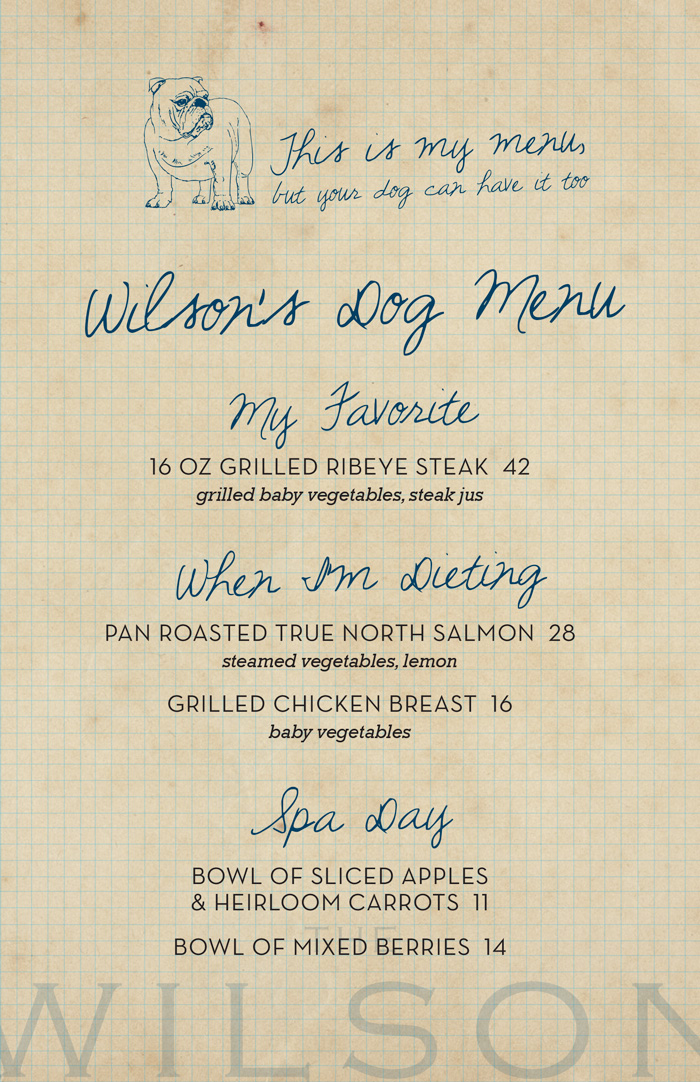 This is my menu,
but your dog can have it too
Wilson's Dog Menu
My Favorite
16 OZ GRILLED RIBEYE STEAK 42
grilled baby vegetables, steak jus
When I'm Dieting
PAN ROASTED TRUE NORTH SALMON 28
steamed vegetables, lemon
GRILLED CHICKEN BREAST 16
baby vegetables
Spa Day
BOWL OF SLICED APPLES
& HEIRLOOM CARROTS 11
THE
BOWL OF MIXED BERRIES 14
WILSON